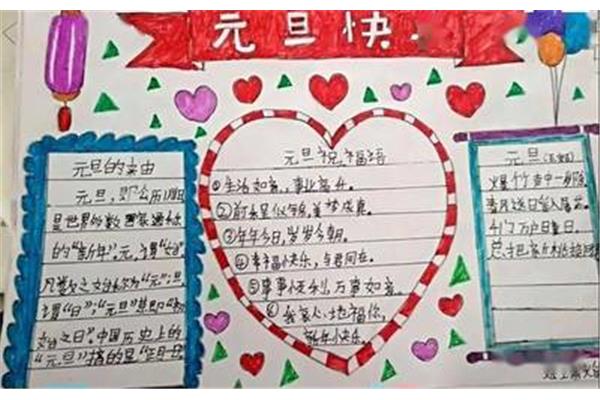 元旦快
元旦的来由
元旦，即公历1月1日
是世界多数国家通称
的“新年”。元，谓“始”
凡数之始称为“元”；旦
谓“日”；“元旦”意即“初
始之日”。中国历史上的
“元旦”指的是“正月一日
元旦祝福语
①生活如意，事业高升。
②前程似锦，美梦成真。
③年年今日，岁岁今朝。
④幸福快乐，与君同在。
⑤事事快乐，万事如意。
⑥我衷心地祝福你，
新年快乐。
元旦
爆竹声中一岁除
春风送暖入屠苏
千门万户曈曈日
总把新桃换旧符